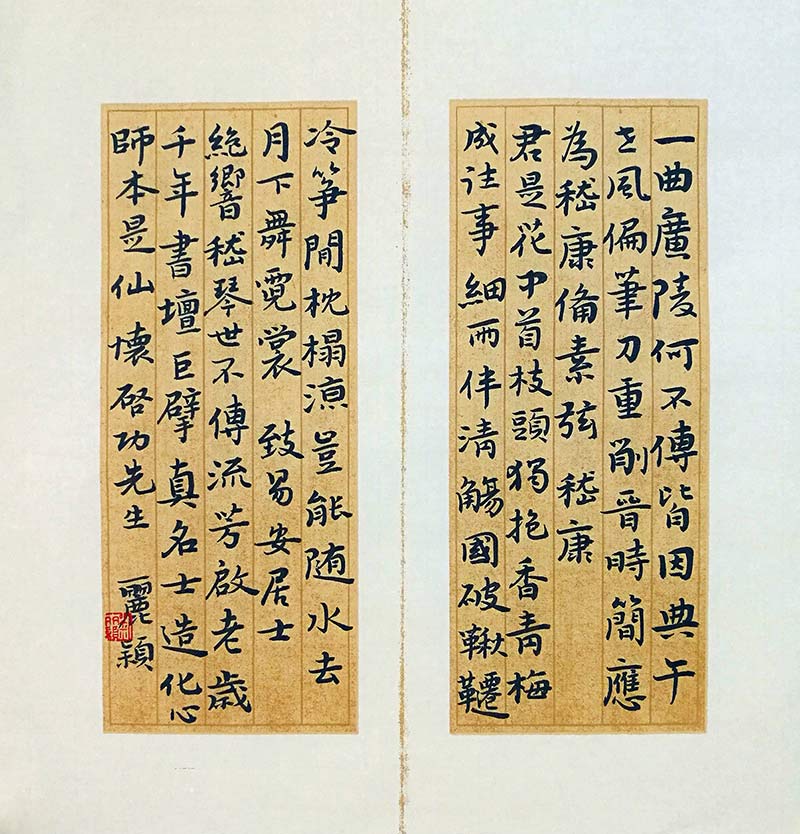 一曲廣陵何不傳皆因典午
世風偏筆刀重削晉時簡應
為嵇康備素弦 嵇康
君是花中首枝頭獨抱香青梅
成往事細雨伴清觴國破鞦韆
冷箏閒枕榻凉豈能随水去
月下舞霓裳 致易安居士
絕響嵇琴世不傳流芳啟老歲
千年書壇巨擘真名士造化心
師本是仙 懷启功先生 麗穎